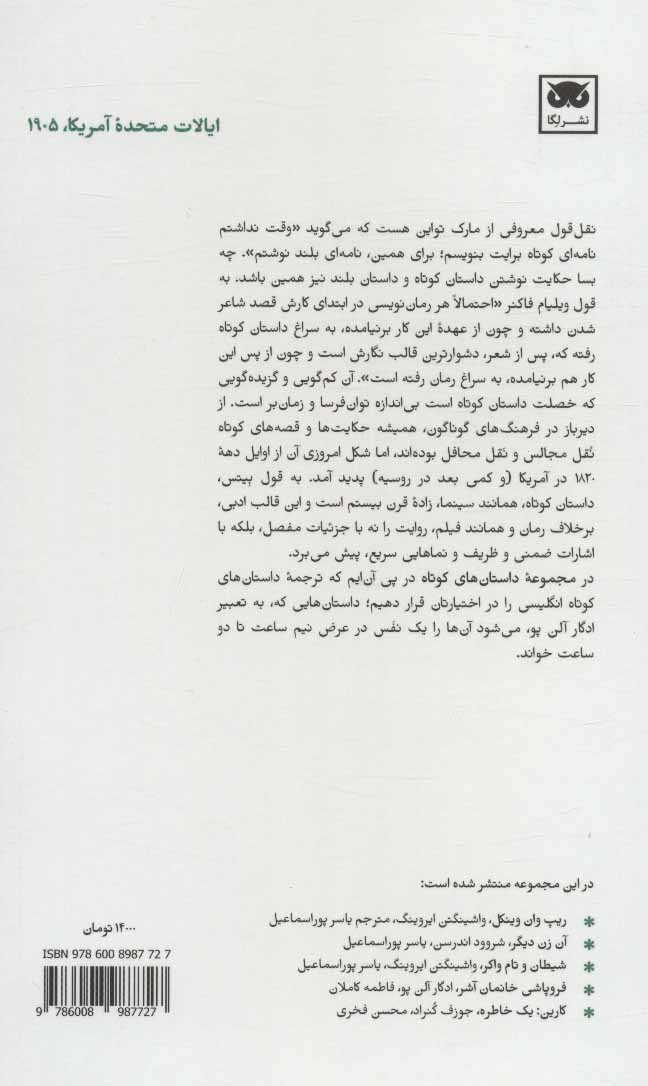 نشر لِگا
ایالات متحدهٔ آمریکا، ۱۹۰۵
نقل‌قول معروفی از مارک تواین هست که می‌گوید «وقت نداشتم
نامه‌ای کوتاه برایت بنویسم؛ برای همین، نامه‌ای بلند نوشتم». چه
بسا حکایت نوشتن داستان کوتاه و داستان بلند نیز همین باشد. به
قول ویلیام فاکنر «احتمالاً هر رمان‌نویسی در ابتدای کارش قصد شاعر
شدن داشته و چون از عهدهٔ این کار برنیامده، به سراغ داستان کوتاه
رفته که، پس از شعر، دشوارترین قالب نگارش است و چون از پس این
کار هم برنیامده، به سراغ رمان رفته است». آن کم‌گویی و گزیده‌گویی
که خصلت داستان کوتاه است بی‌اندازه توان‌فرسا و زمان‌بر است. از
دیرباز در فرهنگ‌های گوناگون، همیشه حکایت‌ها و قصه‌های کوتاه
نُقل مجالس و نَقل محافل بوده‌اند، اما شکل امروزی آن از اوایل دههٔ
۱۸۲۰ در آمریکا (و کمی بعد در روسیه) پدید آمد. به قول بِیتس،
داستان کوتاه، همانند سینما، زادهٔ قرن بیستم است و این قالب ادبی،
برخلاف رمان و همانند فیلم، روایت را نه با جزئیات مفصل، بلکه با
اشارات ضمنی و ظریف و نماهایی سریع، پیش می‌برد.
در مجموعهٔ داستان‌های کوتاه در پی آن‌ایم که ترجمهٔ داستان‌های
کوتاه انگلیسی را در اختیارتان قرار دهیم؛ داستان‌هایی که، به تعبیر
ادگار آلن پو، می‌شود آن‌ها را یک نفَس در عرض نیم ساعت تا دو
ساعت خواند.
در این مجموعه منتشر شده است:
* ریپ وان وینکل، واشینگتن ایروینگ، مترجم یاسر پوراسماعیل
* آن زن دیگر، شروود اندرسن، یاسر پوراسماعیل
* شیطان و تام واکر، واشینگتن ایروینگ، یاسر پوراسماعیل
* فروپاشی خانمان آشر، ادگار آلن پو، فاطمه کاملان
* کارین: یک خاطره، جوزف کُنراد، محسن فخری
۱۴۰۰۰ تومان
ISBN 978 600 8987 72 7
9 786008 987727